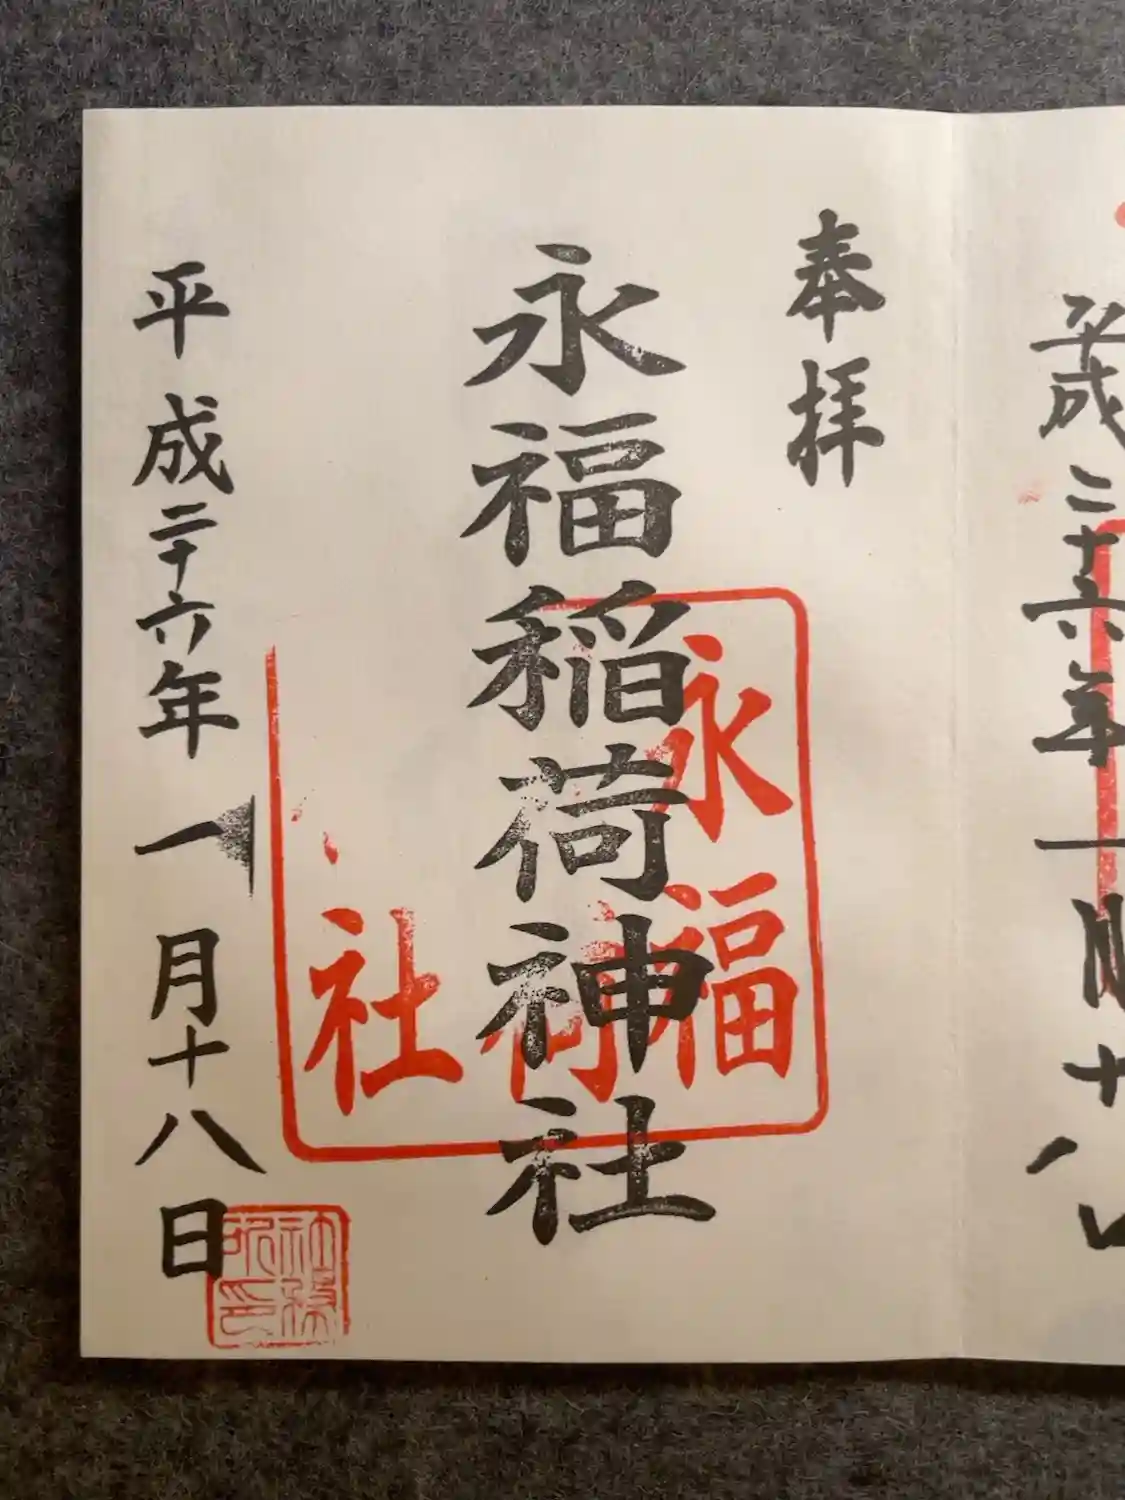 平成二十六年一月十八日
奉拝
永福稲荷神社
平成二十六年一月十八日
永福
荷
社
社務所印